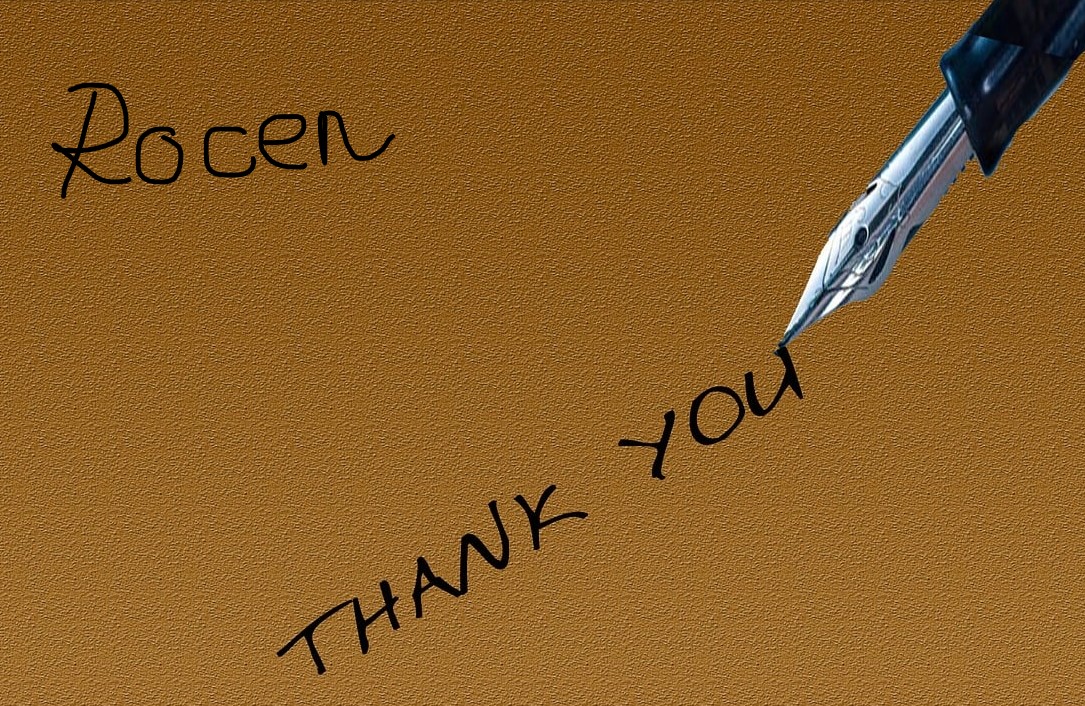 Rocen
THANK YOU